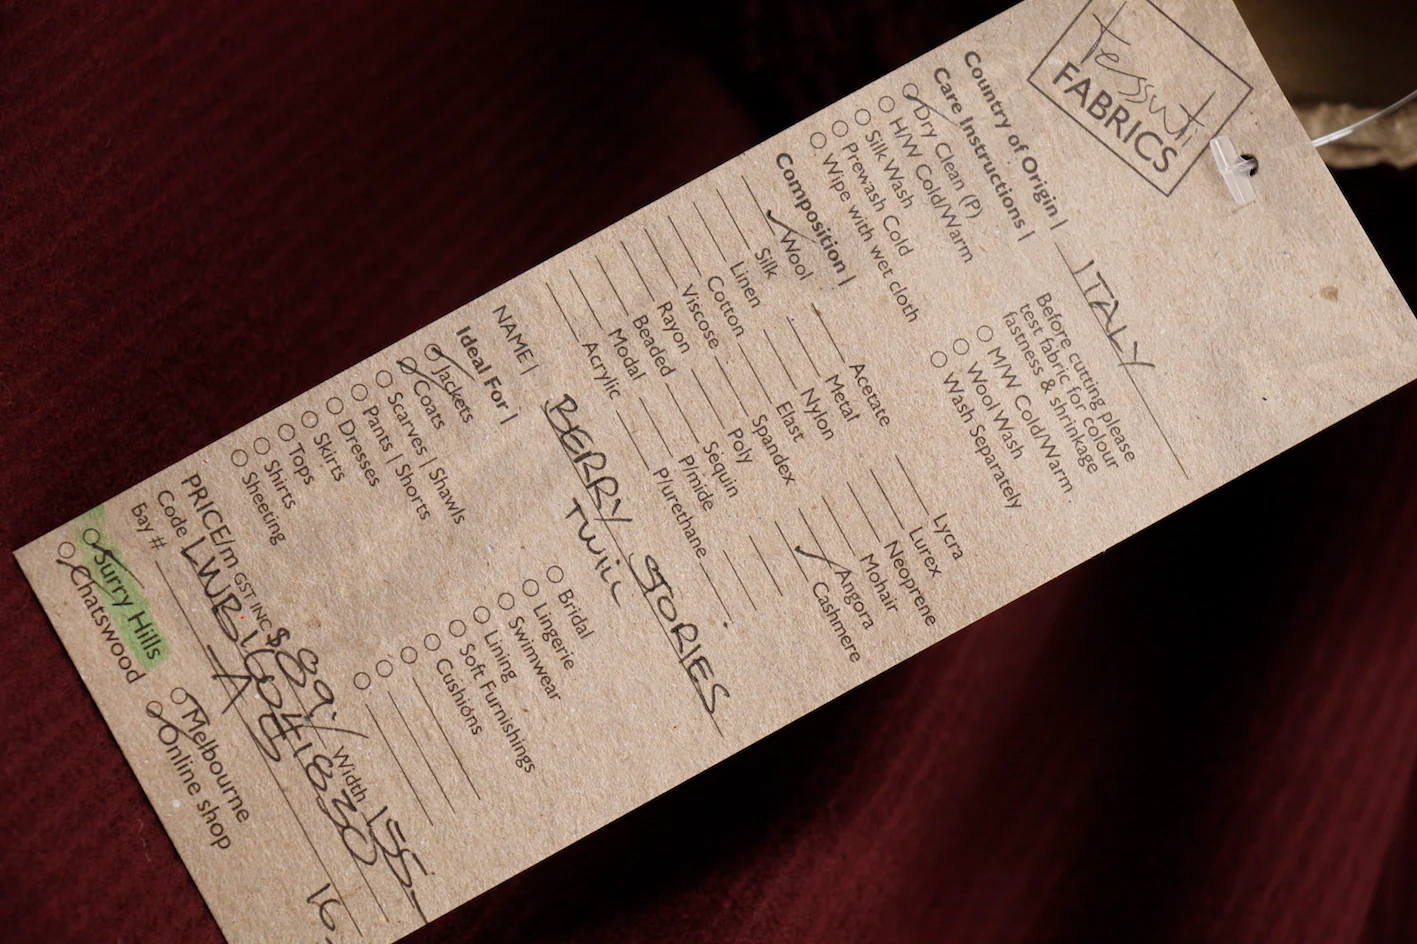 tessuti
FABRICS
Country of Origin | ITALY
Care Instructions |
Before cutting please
test fabric for colour
fastness & shrinkage
Dry Clean (P)
H/W Cold/Warm
Silk Wash
Prewash Cold
Wipe with wet cloth
M/W Cold/Warm
Wool Wash
Wash Separately
Composition |
Wool
Silk
Linen
Cotton
Viscose
Rayon
Beaded
Modal
Acrylic
Acetate
Metal
Nylon
Elast
Spandex
Poly
Sequin
P/mide
P/urethane
Lycra
Lurex
Neoprene
Mohair
Angora
Cashmere
NAME | BERRY STORIES
TWILL
Ideal For |
Jackets
Coats
Scarves | Shawls
Pants | Shorts
Dresses
Skirts
Tops
Shirts
Sheeting
Bridal
Lingerie
Swimwear
Lining
Soft Furnishings
Cushions
PRICE/m GST INC $89./ Width 155
Code
Bay # A 16
Surry Hills
Chatswood
Melbourne
Online shop